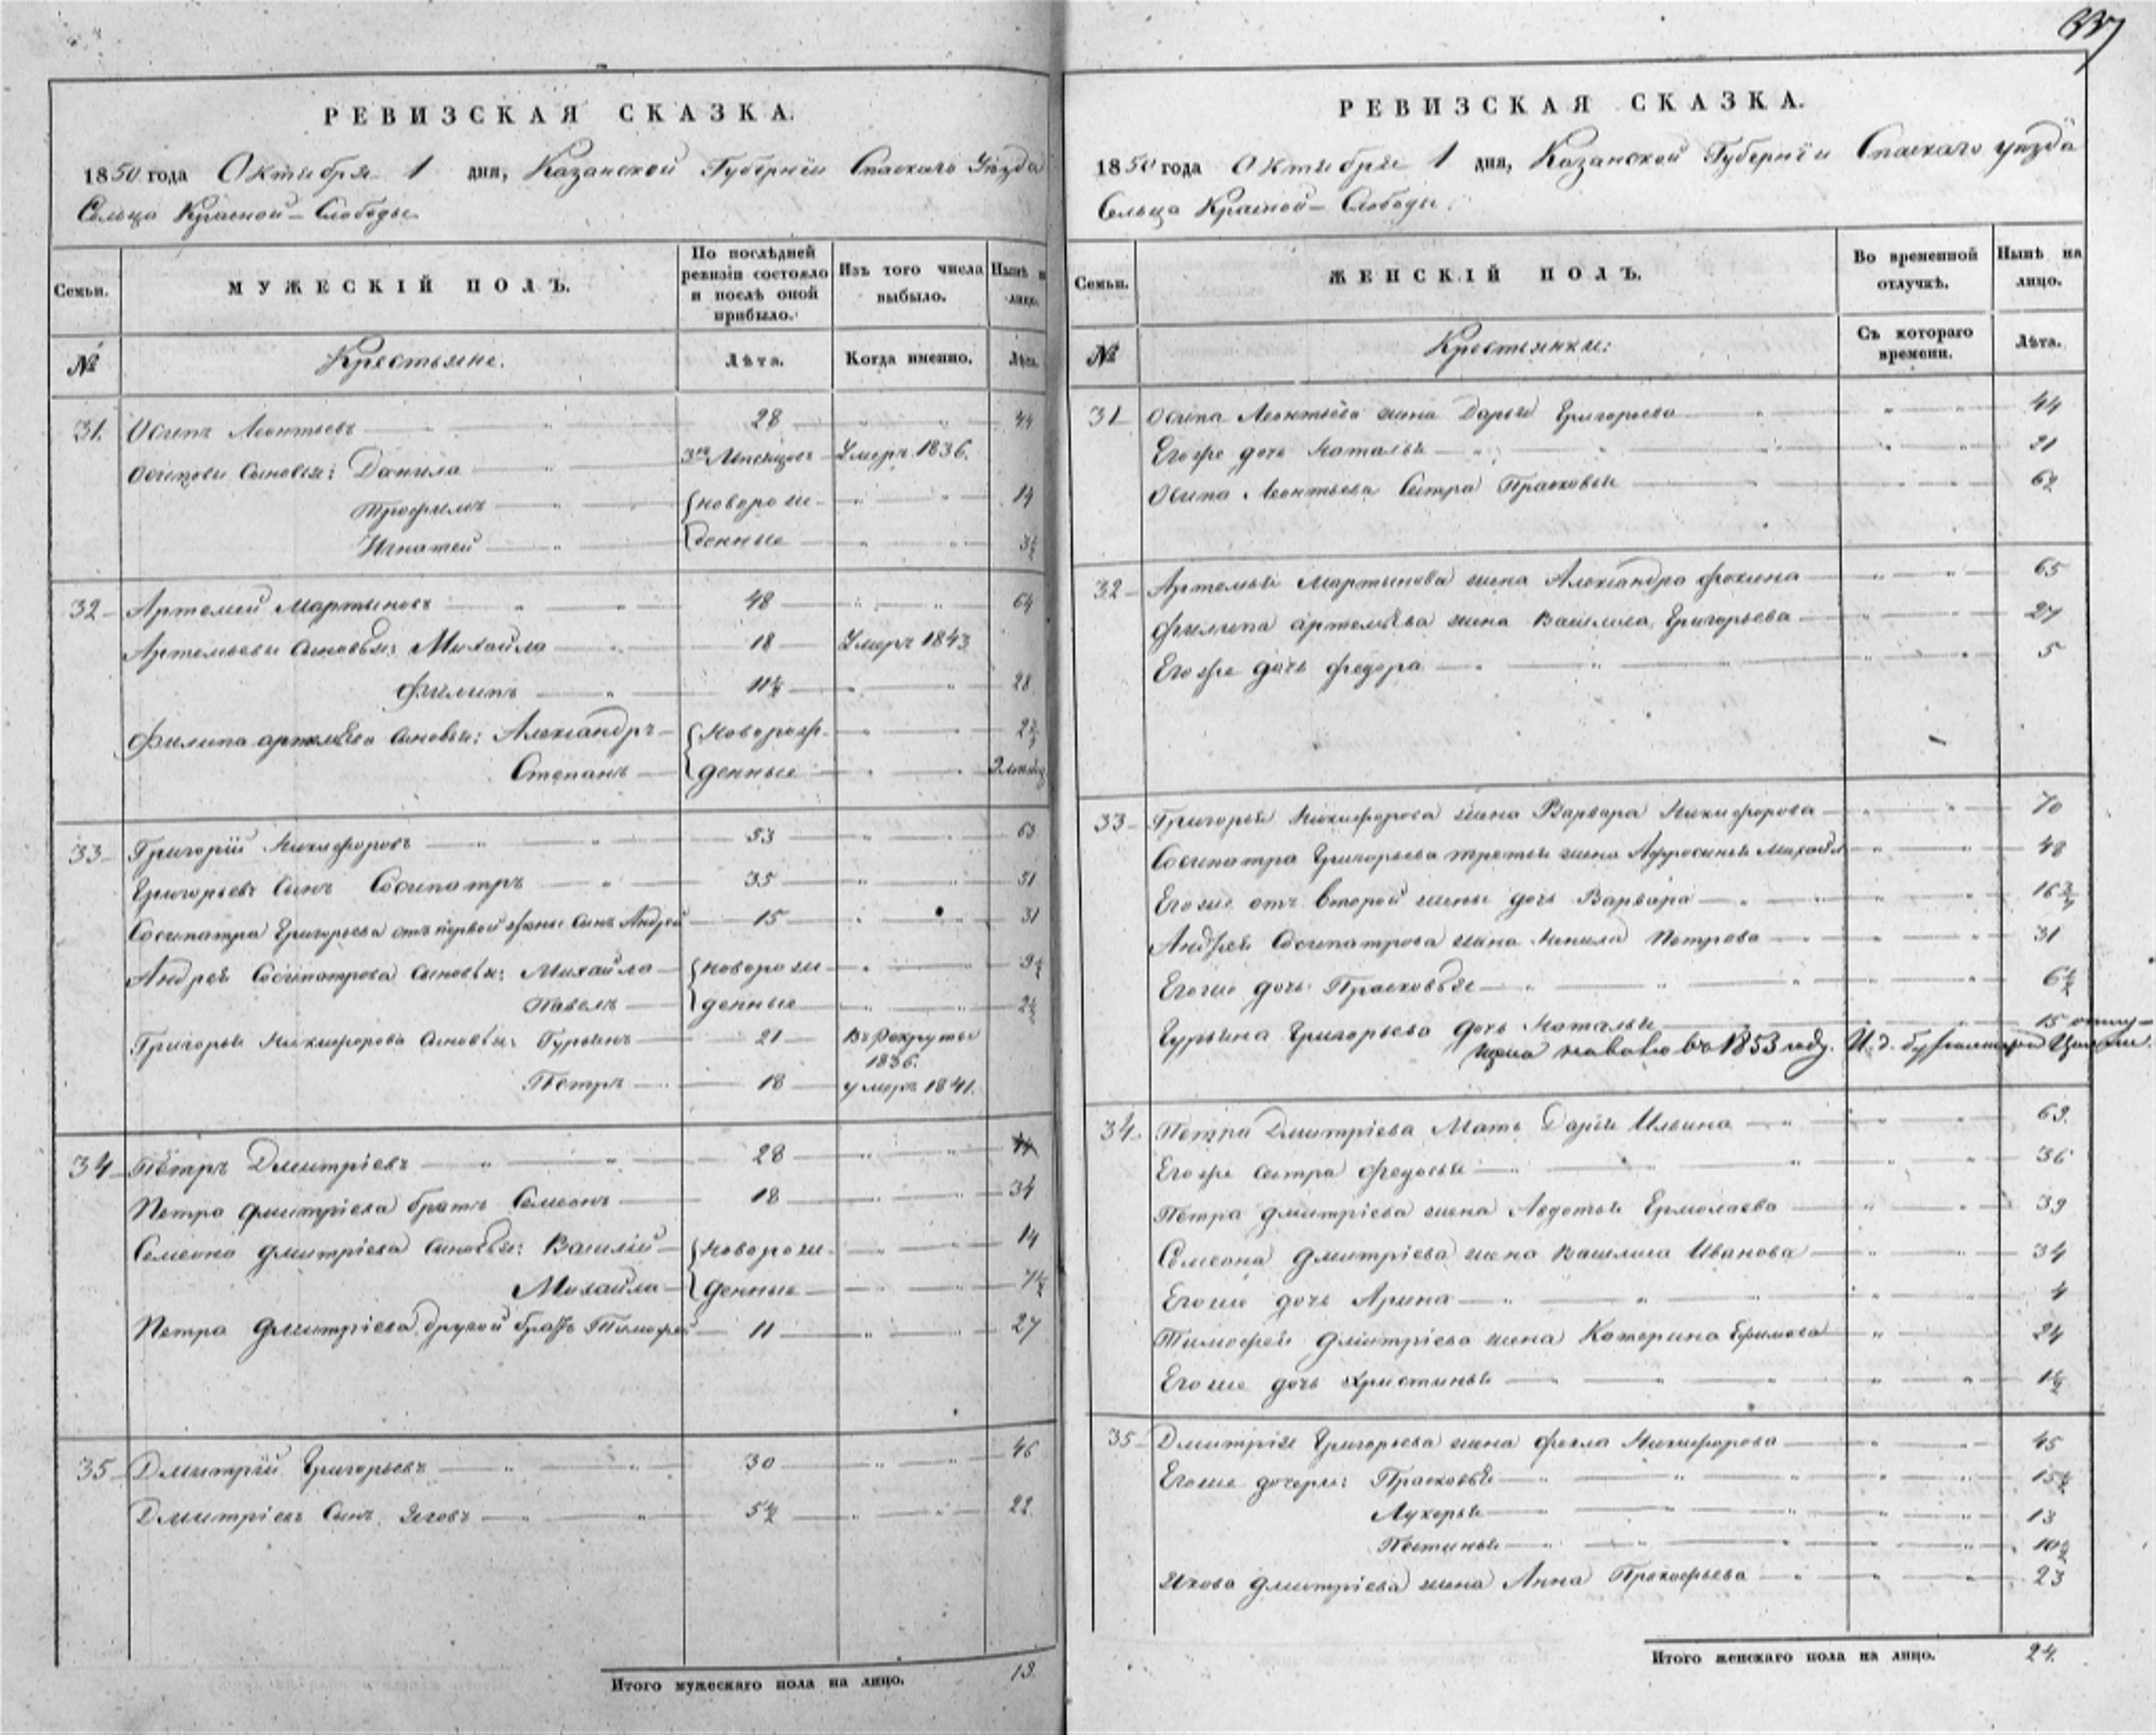 337
РЕВИЗСКАЯ СКАЗКА.
1850 года Октября 1 дня, Казанской Губерніи Спаскаго Уѣзда
Сельца Красной-Слободы
Семьи.
МУЖЕСКІЙ ПОЛЪ.
По послѣдней ревизіи состояло и послѣ оной прибыло.
Изъ того числа выбыло.
Нынѣ на лицо.
№
Крестьяне.
Лѣта.
Когда именно.
Лѣта.
31. Осипъ Леонтьевъ 28 44
Осиповы Сыновья: Данила Умеръ 1836.
Трофимъ {новорож- 14
Игнатей {денные 3½
32 Артемей Мартыновъ 48 64
Артемьевы сыновья: Михайла 18 Умеръ 1843
Филипъ 11½ 28
Филипа артемьева сыновья: Александръ {новорож-
Степанъ {денные
33 Григорій Никифоровъ 53 69
Григорьевъ Сынъ Сосипатръ 35 51
Сосипатра Григорьева отъ первой жены сынъ Андрей 15 31
Андрея Сосипатрова сыновья: Михайла {новорож- 9½
Павелъ {денные 2½
Григорья Никифорова сыновья: Гурьянъ 21 Въ рекруты 1836.
Петръ 18 умеръ 1841.
34 Петръ Дмитріевъ 28 44
Петра дмитріева братъ Семеонъ 18 34
Семеона дмитріева сыновья: Василій {новорож- 14
Михайла {денные 7½
Петра дмитріева другой братъ Тимофей 11 27
35 Дмитрій Григорьевъ 30 46
Дмитріевъ Сынъ Яковъ 5½ 22
Итого мужескаго пола на лицо. 19.
РЕВИЗСКАЯ СКАЗКА.
1850 года Октября 1 дня, Казанской Губерніи Спаскаго уѣзда
Сельца Красной-Слободы.
Семьи.
ЖЕНСКІЙ ПОЛЪ.
Во временной отлучкѣ.
Нынѣ на лицо.
№
Крестьянки:
Съ котораго времени.
Лѣта.
31 Осипа Леонтьева жена Дарья Григорьева 44
Егоже дочь Наталья 21
Осипа Леонтьева Сестра Прасковья 62
32 Артемья Мартынова жена Александра Фокина 65
Филипа артемьева жена Василиса Григорьева 27
Егоже дочь Федора 5
33 Григорья Никифорова жена Варвара Никифорова 70
Сосипатра Григорьева третья жена Афросинья Михайл 48
Егоже отъ второй жены дочь Варвара
Андрея Сосипатрова жена Ненила Петрова 31
Егоже дочь Прасковья 6½
Гурьяна Григорьева дочь Наталья 15 отпу-
щена на волю въ 1853 году. И. д.
34 Петра Дмитріева Мать Дарья Ильина 69.
Егоже сестра Федосья 36
Петра дмитріева жена Авдотья Ермолаева 39
Семеона дмитріева жена Василиса Иванова 34
Егоже дочь Арина 4
Тимофея дмитріева жена Катерина Ефимова 24
Егоже дочь Христинья 1½
35 Дмитрія Григорьева жена Фекла Никифорова 45
Егоже дочери: Прасковья 15½
Лукерья 13
Устинья 10½
Якова дмитріева жена Анна Прокофьева 23
Итого женскаго пола на лицо. 24.